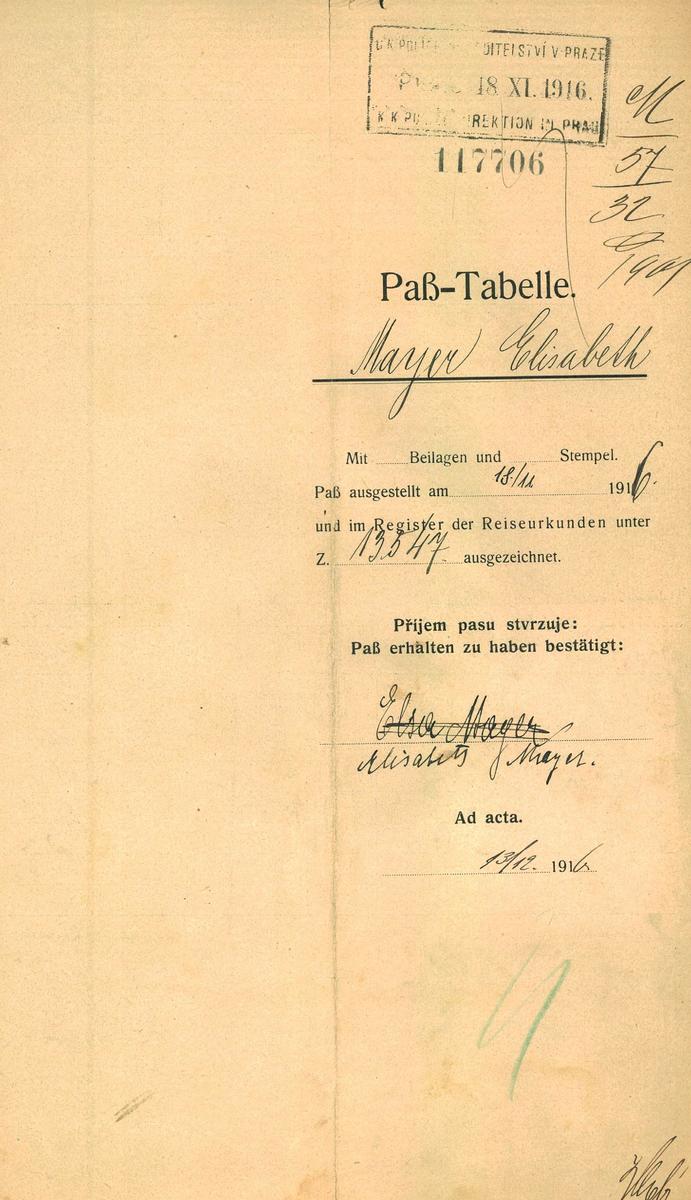 DITELSTVÍ V PRAZE
18 XI. 1916.
K K DIREKTION IN PRAG
117706
M
57
32
1901
Paß-Tabelle.
Mayer Elisabeth
Mit ......Beilagen und ......... Stempel.
Paß ausgestellt am 18/11 1916.
und im Register der Reiseurkunden unter
Z. 13547. ausgezeichnet.
Příjem pasu stvrzuje:
Paß erhalten zu haben bestätigt:
Elsa Mayer
Elisabeth Mayer.
Ad acta.
13/12. 1916